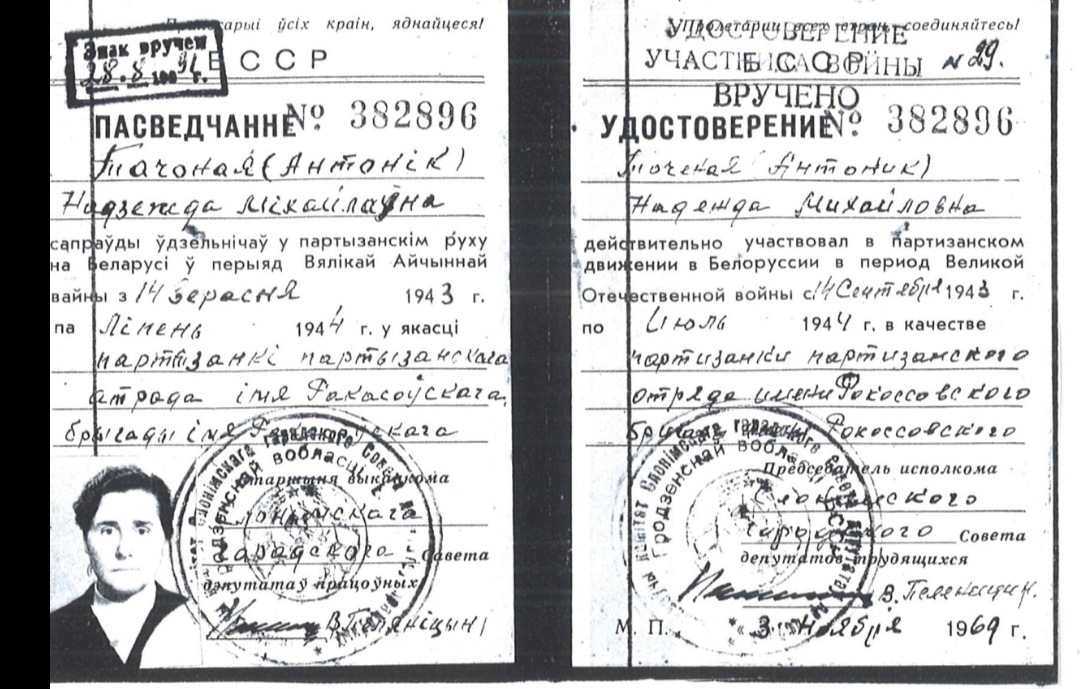 Пралетарыі ўсіх краін, яднайцеся!
Знак вручен
28.8.
г.
БССР
ПАСВЕДЧАННЕ № 382896
Тачоная (Антонік)
Надзежда Міхайлаўна
сапраўды ўдзельнічаў у партызанскім руху
на Беларусі ў перыяд Вялікай Айчыннай
вайны з 14 верасня 1943 г.
па Ліпень 1944 г. у якасці
партызанкі партызанскага
атрада імя Ракасоўскага,
брыгады імя Ракасоўскага
Старшыня выканкома
Слонімскага
гарадскога Савета
дэпутатаў працоўных
Пролетарии всех стран, соединяйтесь!
УДОСТОВЕРЕНИЕ
УЧАСТНИКА ВОЙНЫ № 29.
БССР
ВРУЧЕНО
УДОСТОВЕРЕНИЕ № 382896
Точеная (Антоник)
Надежда Михайловна
действительно участвовал в партизанском
движении в Белоруссии в период Великой
Отечественной войны с 14 Сентября 1943 г.
по Июль 1944 г. в качестве
партизанки партизанского
отряда имени Рокоссовского
бригады Рокоссовского
Председатель исполкома
Слонимского
городского Совета
депутатов трудящихся
М. П. 3 ноября 1969 г.